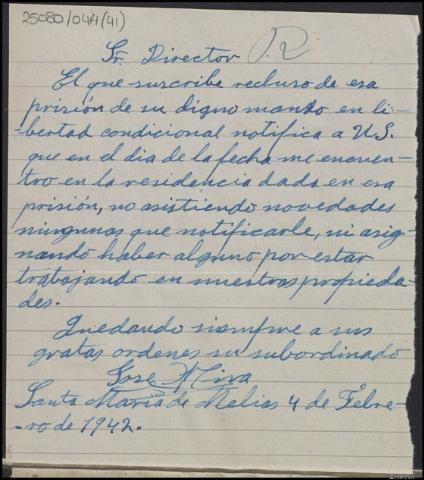 25080/044(41)
Sr. Director R
El que suscribe recluso de esa
prisión de su digno mando en li-
bertad condicional notifica a U.S.
que en el dia de la fecha me encuen-
tro en la residencia dada en esa
prisión, no asistiendo novedades
ningunas que notificarle, ni asig-
nando haber alguno por estar
trabajando en nuestras propieda-
des.
Quedando siempre a sus
gratas ordenes su subordinado
Jose
Santa Maria de Melias 4 de Febre-
-ro de 1942.